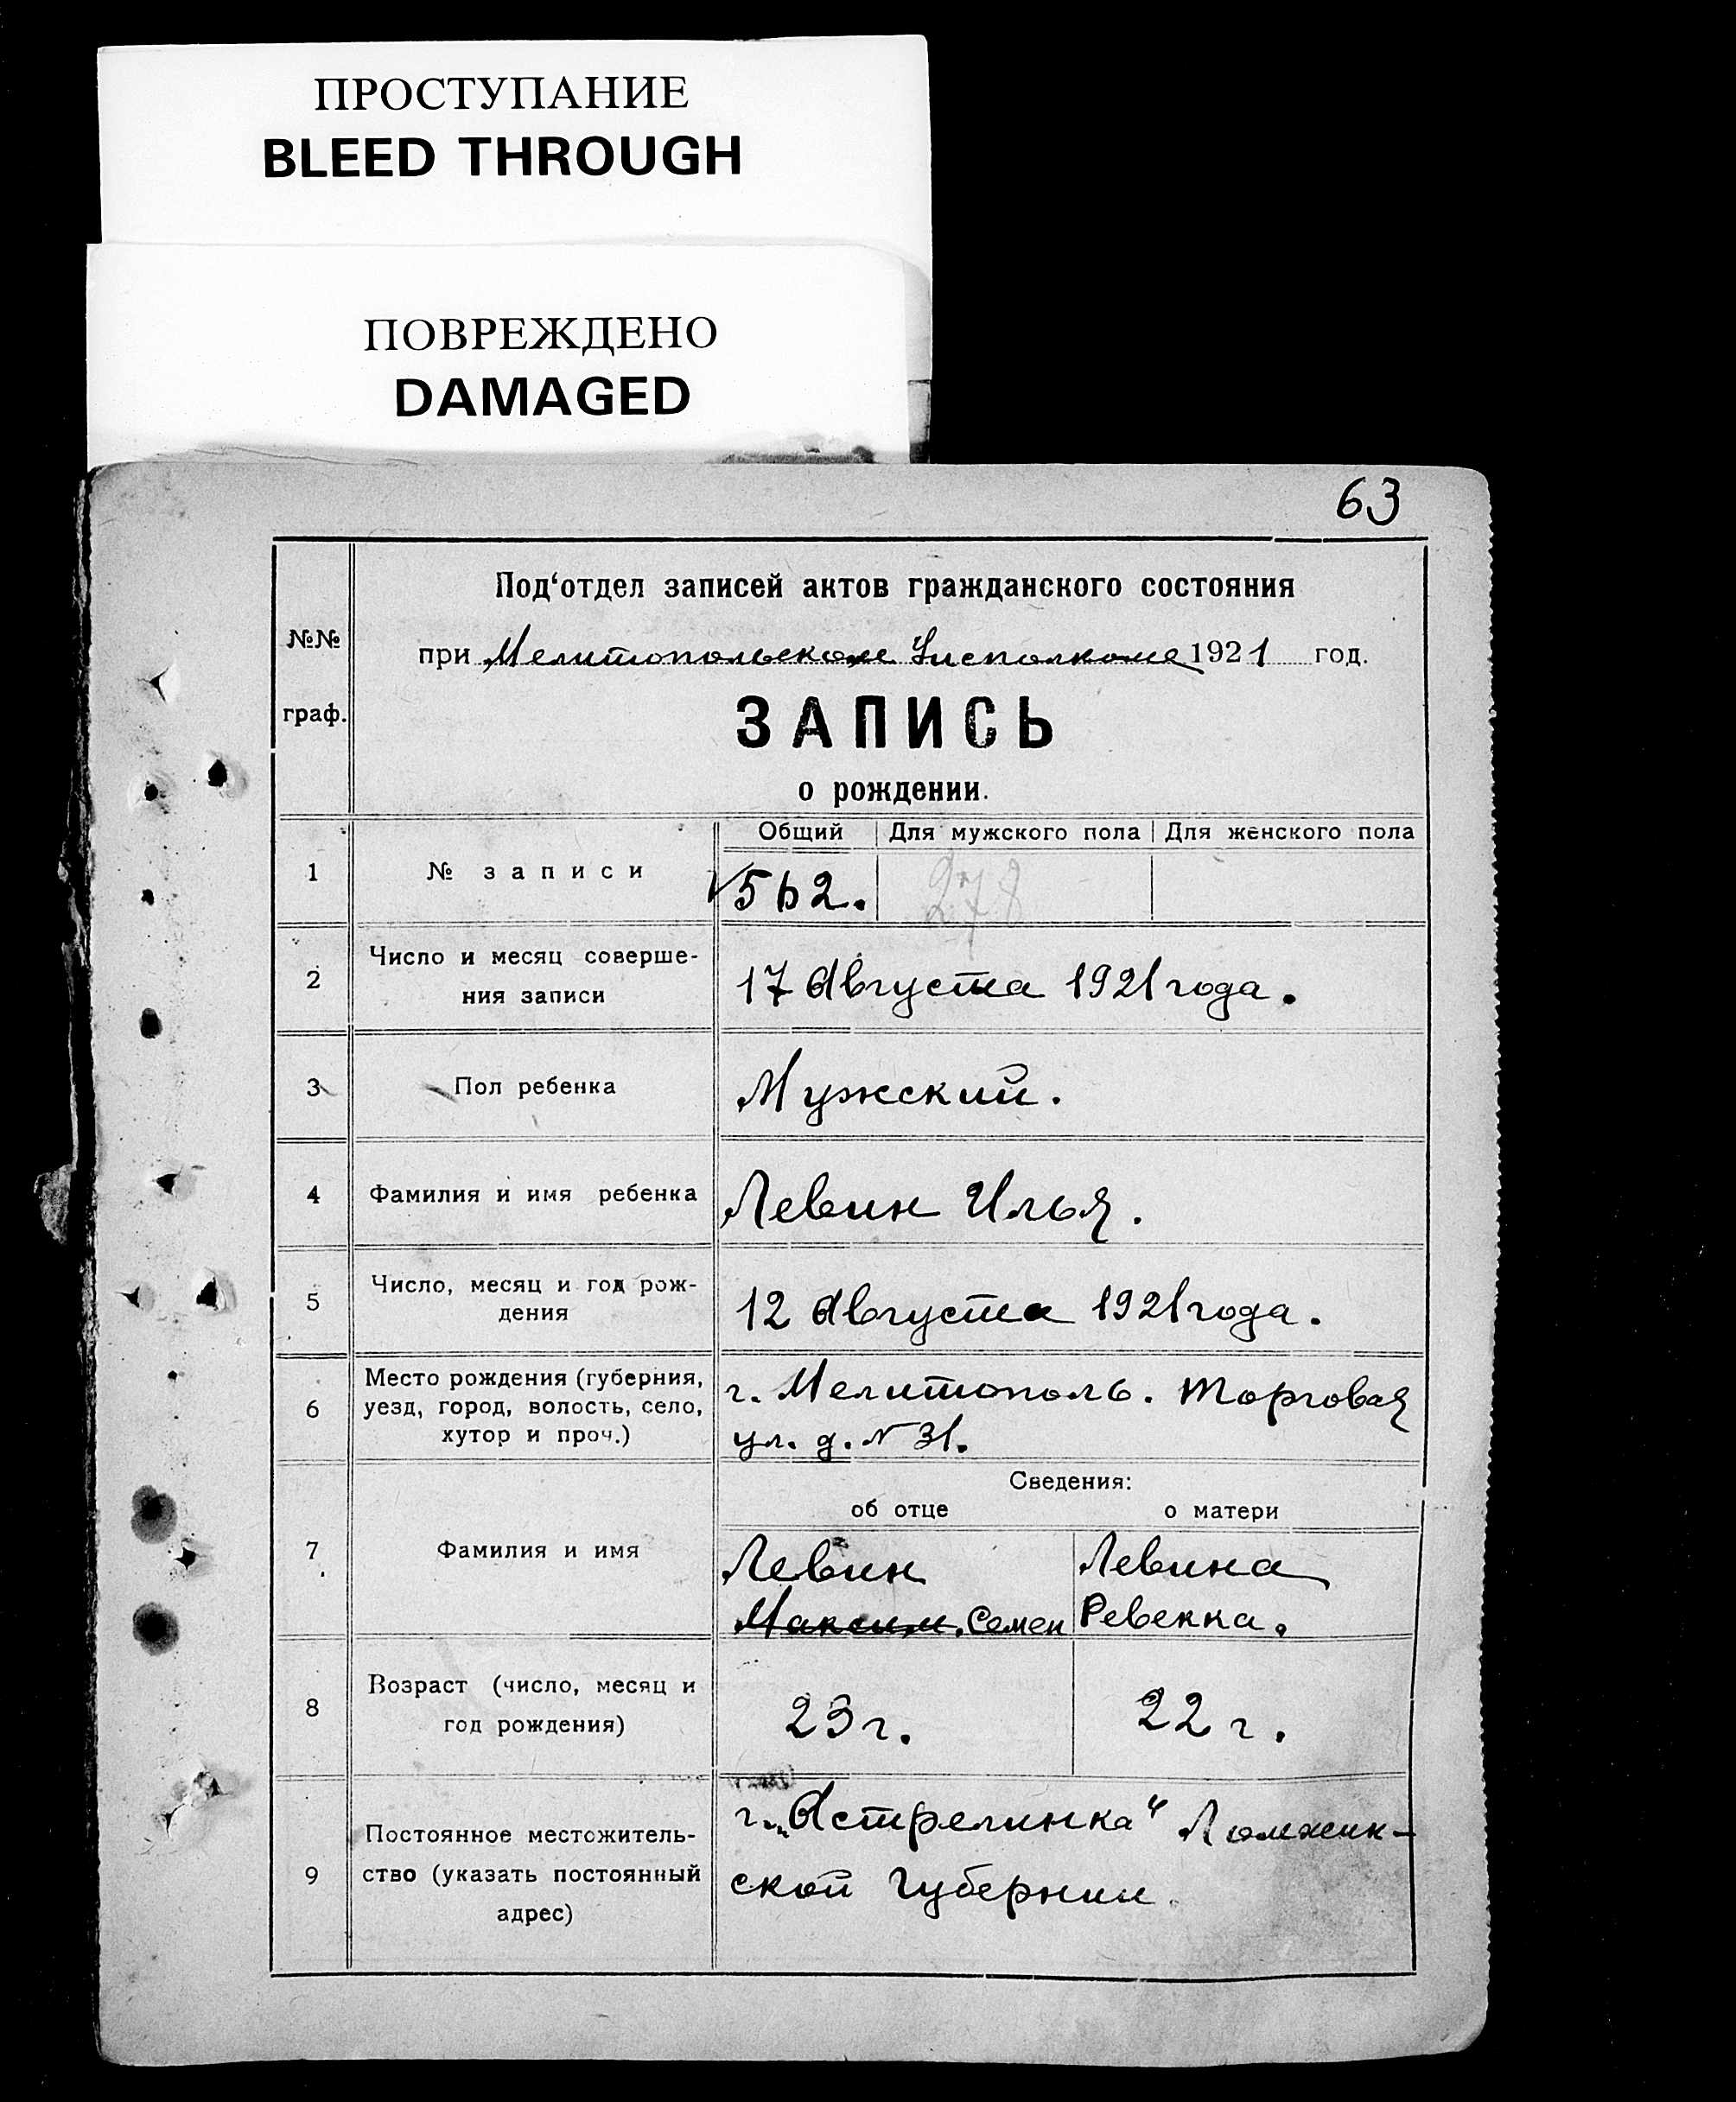 ПРОСТУПАНИЕ
BLEED THROUGH
ПОВРЕЖДЕНО
DAMAGED
63
Под‘отдел записей актов гражданского состояния
№№
при Мелитопольском Уисполкоме 1921 год.
граф.
ЗАПИСЬ
о рождении.
Общий Для мужского пола Для женского пола
1 № записи 562. 278
2 Число и месяц соверше-
ния записи
17 Августа 1921 года.
3 Пол ребенка Мужский.
4 Фамилия и имя ребенка Левин Илья.
5 Число, месяц и год рож-
дения
12 Августа 1921 года.
6 Место рождения (губерния,
уезд, город, волость, село,
хутор и проч.)
г. Мелитополь. Торговая
ул. д. № 31.
Сведения:
об отце о матери
7 Фамилия и имя
Левин Левина
Максим. Семен Ревекка.
8 Возраст (число, месяц и
год рождения)
23 г. 22 г.
9 Постоянное местожитель-
ство (указать постоянный
адрес)
г. „Астрелинка“ Ломжинк-
ской губернии.